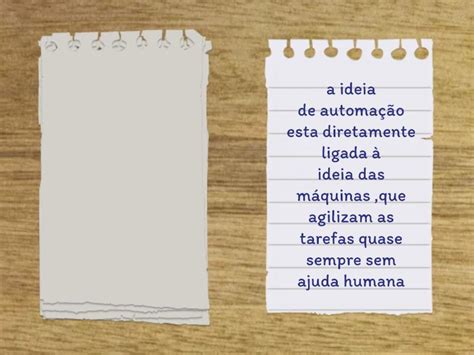 a ideia
de automação
esta diretamente
ligada à
ideia das
máquinas ,que
agilizam as
tarefas quase
sempre sem
ajuda humana